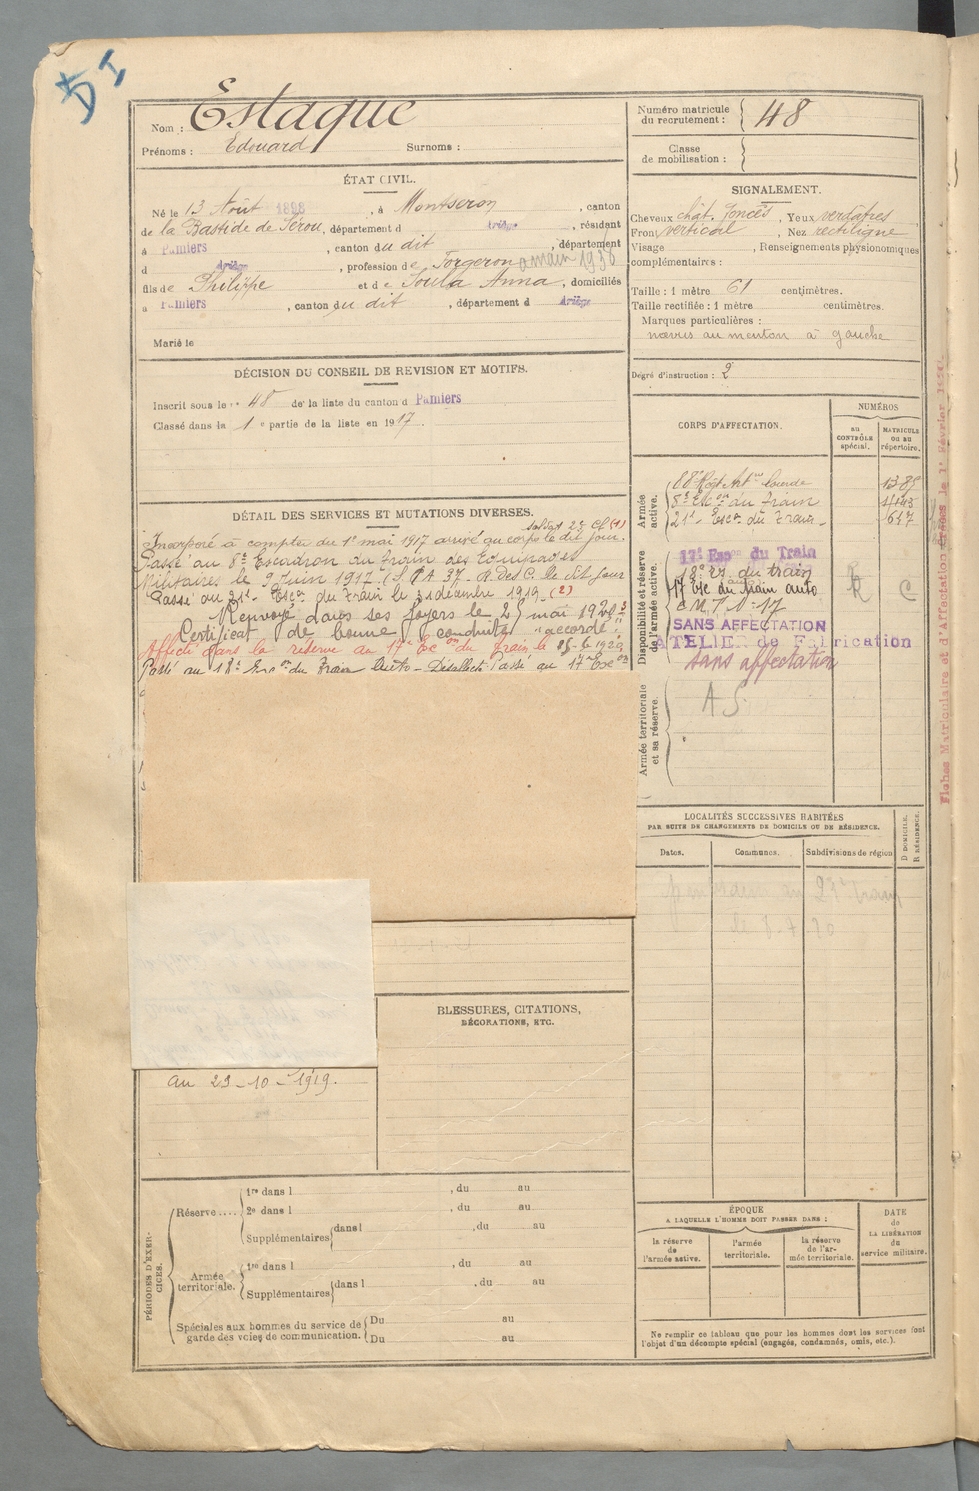 DI
Nom : Estaque
Prénoms : Edouard Surnoms :
ÉTAT CIVIL.
Né le 13 Août 1898, à Montseron, canton
de la Bastide de Sérou, département d Ariège, résidant
à Pamiers, canton du dit, département
d Ariège, profession de Forgeron 1936
fils de Philippe et de Soula Anna, domiciliés
à Pamiers, canton du dit, département d Ariège
Marié le
DÉCISION DU CONSEIL DE REVISION ET MOTIFS.
Inscrit sous le n° 48 de la liste du canton d Pamiers
Classé dans la 1e partie de la liste en 1917.
DÉTAIL DES SERVICES ET MUTATIONS DIVERSES.
soldat 2e Cl (1)
Incorporé à compter du 1er mai 1917 arrivé au corps le dit jour.
Passé au 8e Escadron du Train des Equipages
Militaires le 9 Juin 1917. le dit jour
Passé au 21e Escon du Train le 31 décembre 1919. (2)
Renvoyé dans ses foyers le 25 mai 1920
Certificat de bonne conduite "accordé"
Affecté dans la réserve au 17e Econ du Train le 15-6-1920
Passé au 18e Escon du Train Auto - Passé au 17e Escon
au 23-10-1919.
BLESSURES, CITATIONS,
DÉCORATIONS, ETC.
PÉRIODES D'EXERCICES.
Réserve....
1re dans l , du au
2e dans l , du au
Supplémentaires dans l , du au
Armée territoriale.
1re dans l , du au
Supplémentaires dans l , du au
Spéciales aux hommes du service de
garde des voies de communication.
Du au
Du au
Numéro matricule
du recrutement : 48
Classe
de mobilisation :
SIGNALEMENT.
Cheveux chât. foncés, Yeux verdâtres
Front vertical, Nez rectiligne
Visage , Renseignements physionomiques
complémentaires :
Taille : 1 mètre 61 centimètres.
Taille rectifiée : 1 mètre centimètres.
Marques particulières :
nævus au menton à gauche
Degré d'instruction : 2
CORPS D'AFFECTATION.
NUMÉROS
AU CONTRÔLE spécial.
MATRICULE OU AU répertoire.
Armée active.
Régt Artie lourde
8e Escon du Train
21e Escon du Train
Disponibilité et réserve de l'armée active.
17e Escon du Train
du train
17 du train auto
C M 17
SANS AFFECTATION
ATELIER de Fabrication
Sans affectation
R C
Armée territoriale et sa réserve.
A S
LOCALITÉS SUCCESSIVES HABITÉES
PAR SUITE DE CHANGEMENTS DE DOMICILE OU DE RÉSIDENCE.
Dates. Communes. Subdivisions de région
D DOMICILE. R RÉSIDENCE.
ÉPOQUE
A LAQUELLE L'HOMME DOIT PASSER DANS :
la réserve de l'armée active.
l'armée territoriale.
la réserve de l'armée territoriale.
DATE de LA LIBÉRATION du service militaire.
Ne remplir ce tableau que pour les hommes dont les services font
l'objet d'un décompte spécial (engagés, condamnés, omis, etc.).
Fiches Matriculaire et d'Affectation le 1er Février